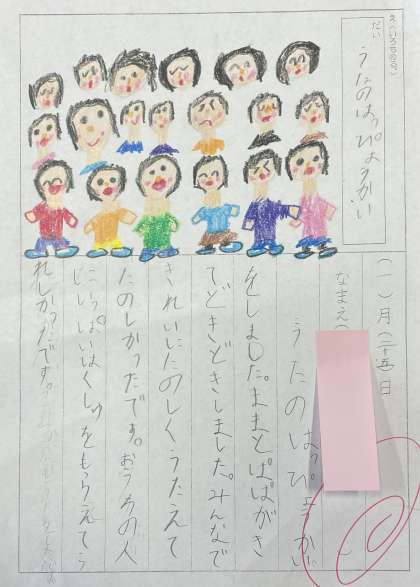 えにっき
だい
うたのはっぴょうかい
(一)月(二十五)日
なまえ(
うたのはっぴょうかい
をしました。ままとぱぱがき
てどきどきしました。みんなで
きれいにたのしくうたえて
たのしかったです。おうちの人
にいっぱいはくしゅをもらえてう
れしかったです。